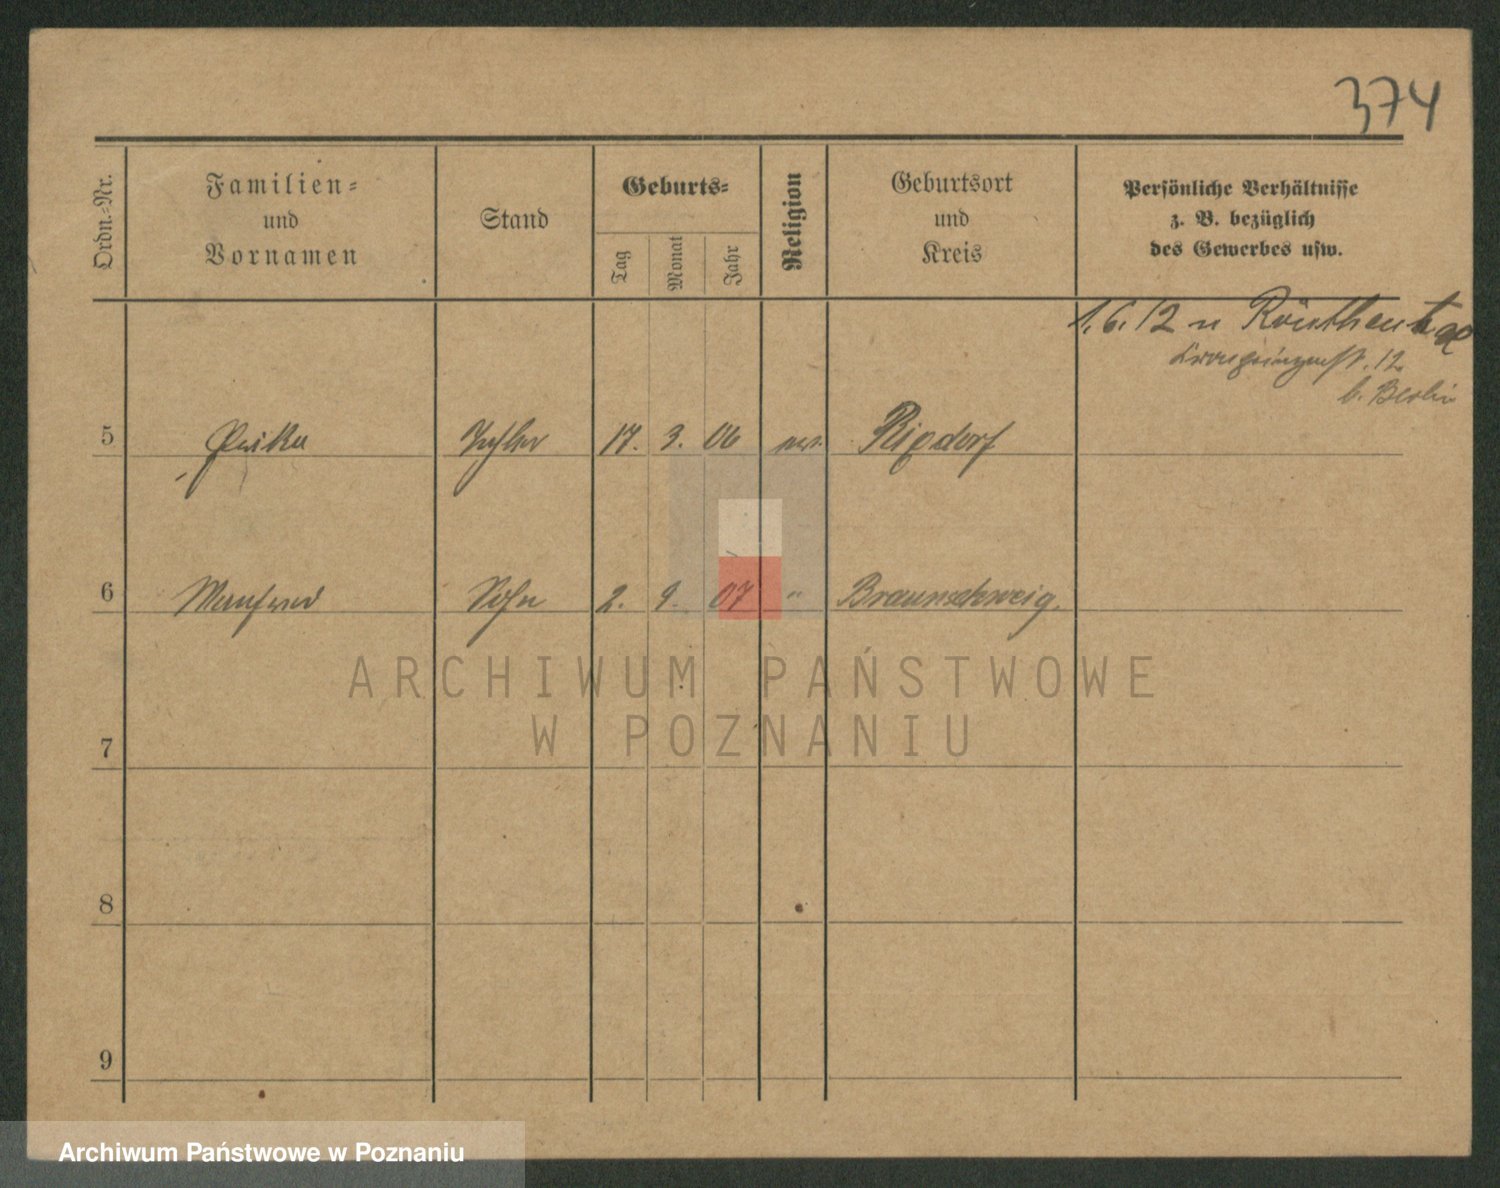 374
Ordn.=Nr.
Familien=
und
Vornamen
Stand
Geburts=
Tag
Monat
Jahr
Religion
Geburtsort
und
Kreis
Persönliche Verhältnisse
z. B. bezüglich
des Gewerbes usw.
1.6.12 n
12
b. Berlin
5 Tochter 17. 3. 06 Rixdorf
6 Manfred Sohn 2. 9. 07 " Braunschweig.
7
8
9
ARCHIWUM PAŃSTWOWE
W POZNANIU
Archiwum Państwowe w Poznaniu